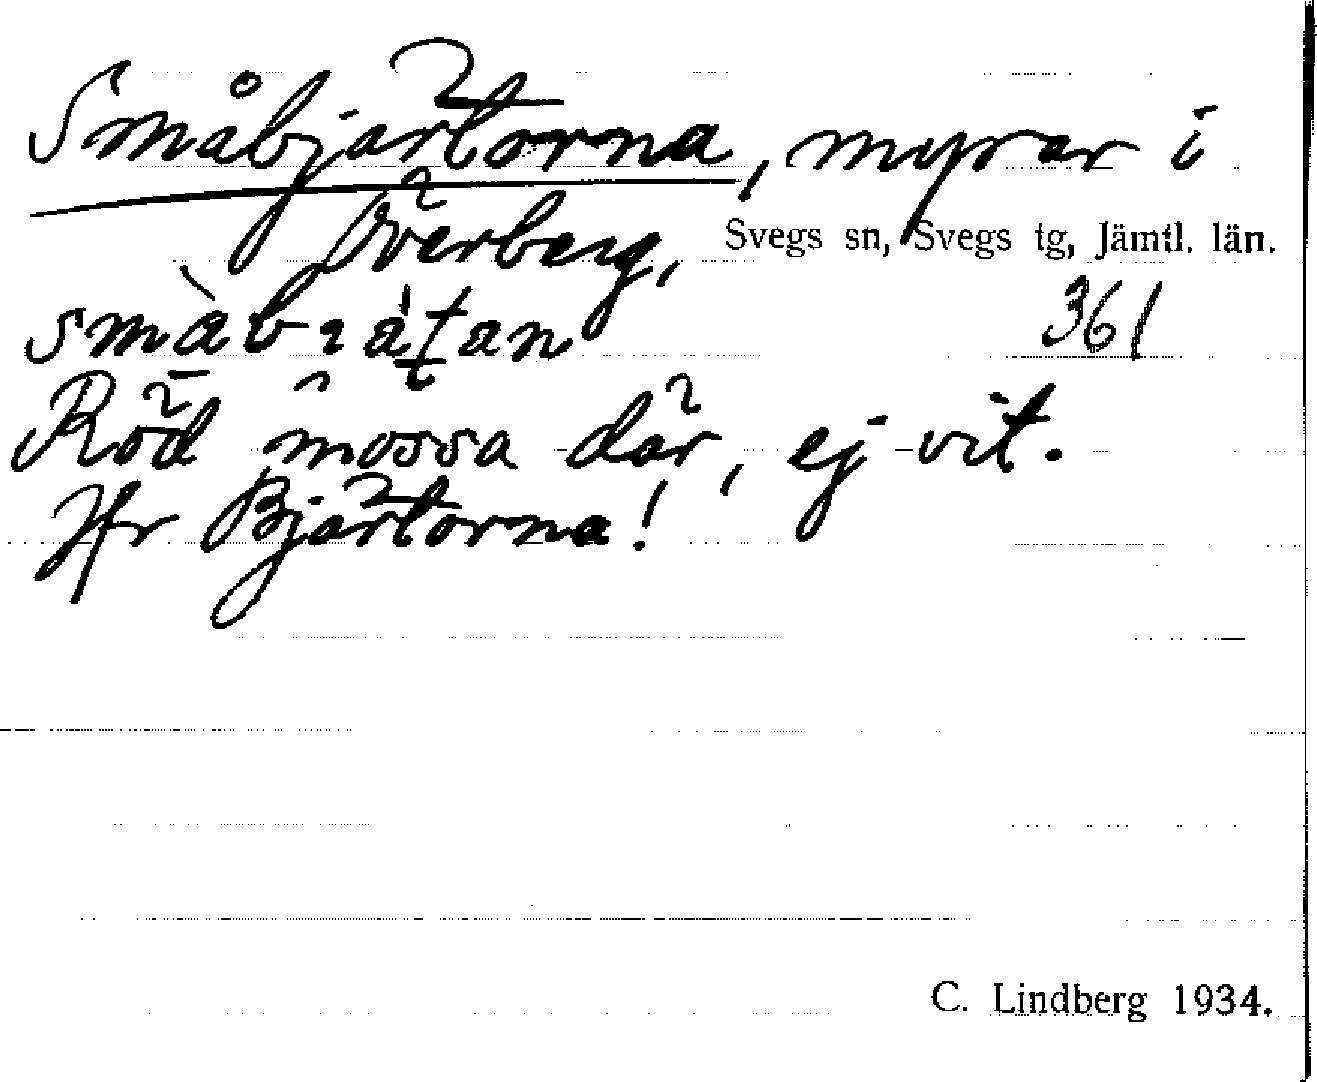 Småbjärtorna, myrar i
Överberg, Svegs sn, Svegs tg, Jämtl. län.
361
Röd mossa där, ej vit.
Jfr Bjärtorna!
C. Lindberg 1934.